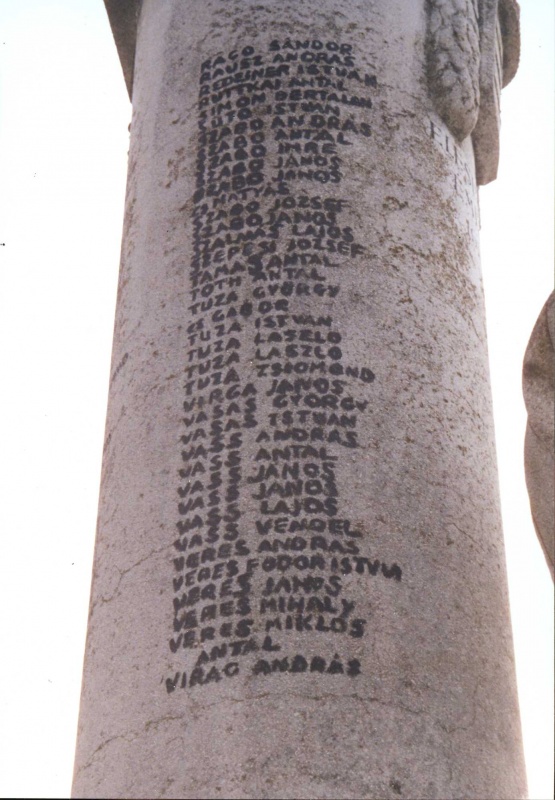 SÁNDOR
ANDRÁS
REDEINER ISTVÁN
RUTTKAI ANTAL
SIMON BERTALAN
SÜTŐ ISTVAN
SZABÓ ANDRÁS
SZABÓ ANTAL
SZABÓ IMRE
SZABÓ JÁNOS
SZABÓ JÁNOS
MÁTYÁS
SZABÓ JÓZSEF
SZABÓ JÁNOS
SZALMÁS LAJOS
SZEPESI JÓZSEF
TAMÁS ANTAL
TÓTH ANTAL
TUZA GYÖRGY
GÁBOR
TUZA ISTVÁN
TUZA LÁSZLÓ
TUZA LÁSZLÓ
TUZA ZSIGMOND
VARGA JÁNOS
VASAS GYÖRGY
VASAS ISTVÁN
VASS ANDRÁS
VASS ANTAL
VASS JÁNOS
VASS JÁNOS
VASS LAJOS
VASS VENDEL
VERES ANDRÁS
VERES FODOR ISTVÁN
VERES JÁNOS
VERES MIHÁLY
VERES MIKLÓS
ANTAL
VIRÁG ANDRÁS